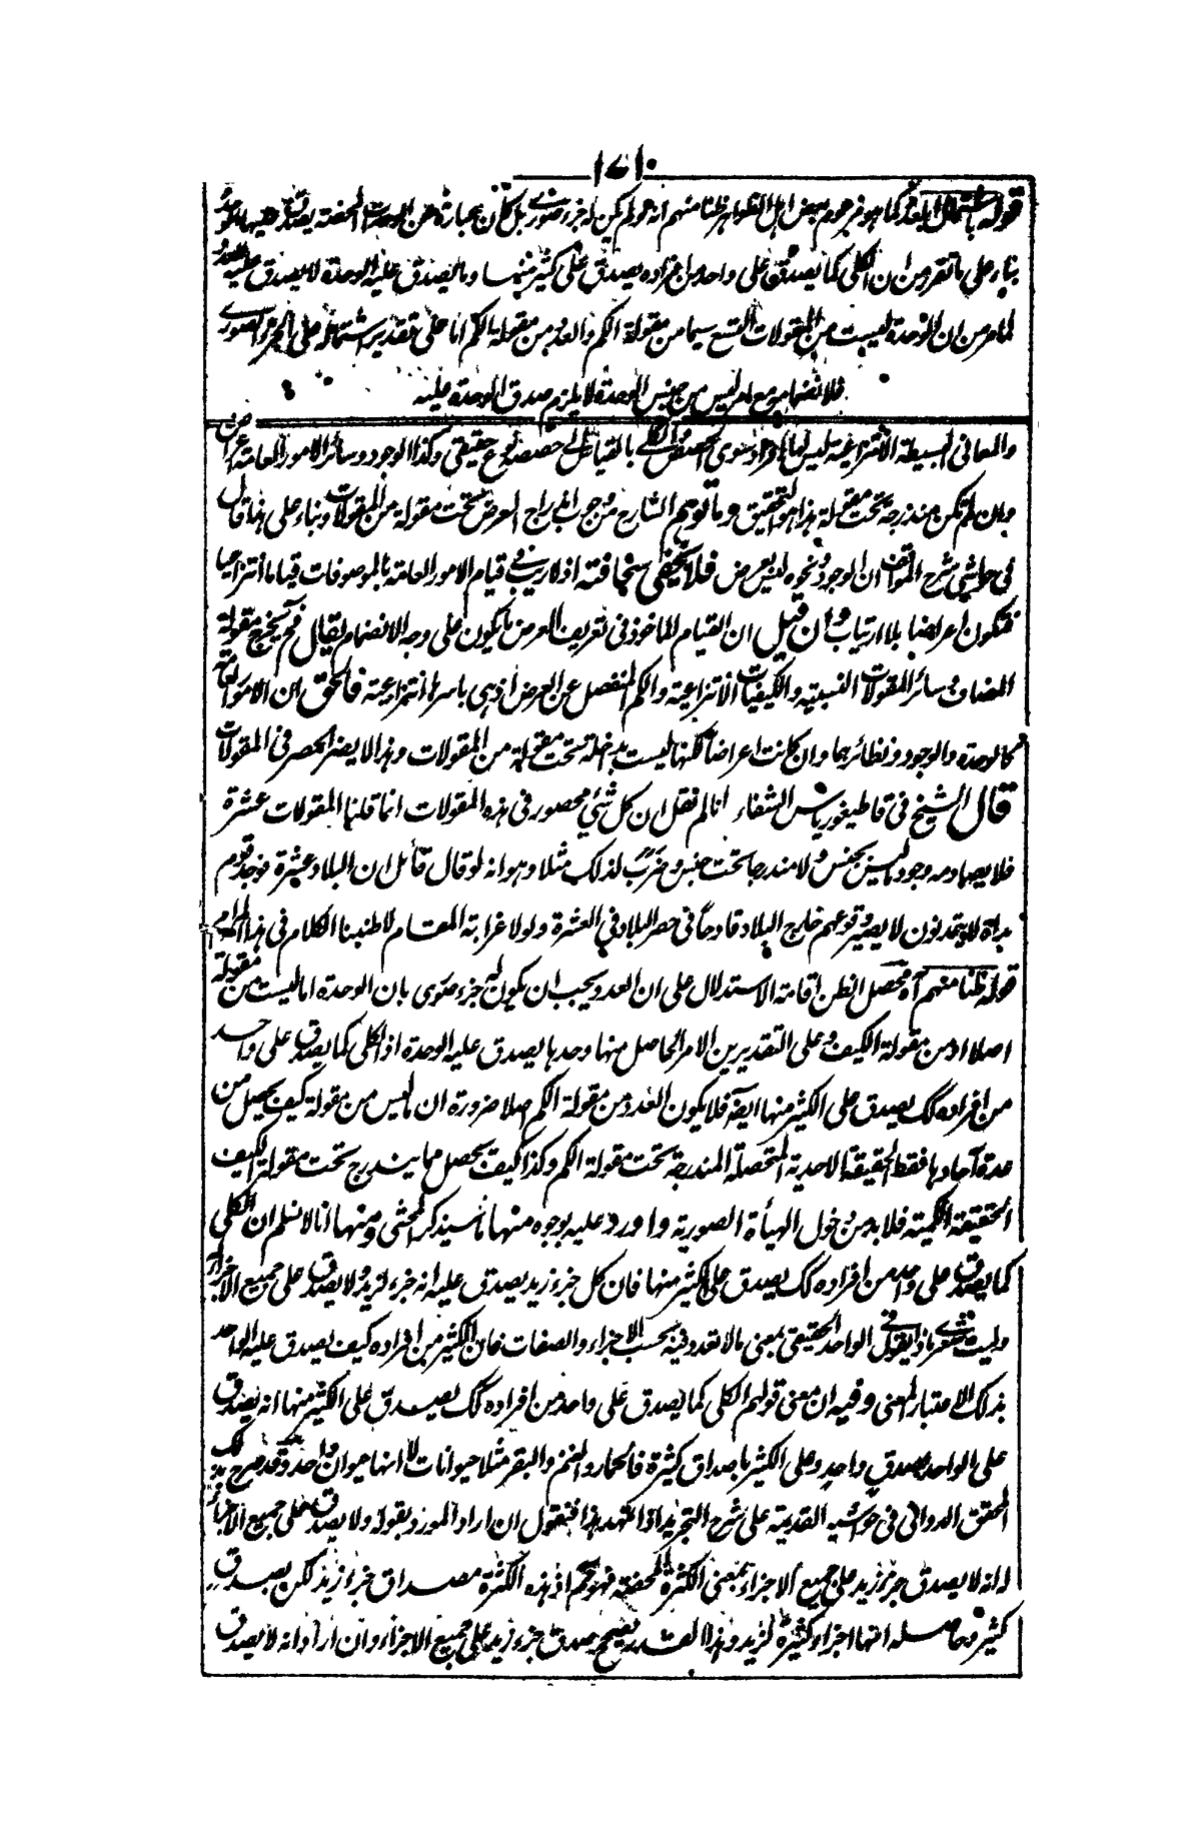 ١٧١
قوله باشتمال العدد كما هو مزعوم بعض اهل الظواهر ظنا منهم انه لو لم يكن له جزء صوري بل كان عبارة عن الوحدات المحضة يصدق عليها الوحدة
بناء على ما تقرر من ان الكلي كما يصدق على واحد من افراده يصدق على كثير منها وما يصدق عليه الوحدة لا يصدق عليه العدد
لما مر من ان الوحدة ليست من المقولات التسع سيما من مقولة الكم والعدد من مقولة الكم اما على تقدير اشتماله على الجزء الصوري
فلانضمامه مع ما ليس من جنس الوحدة لا يلزم صدق الوحدة عليه
والمعاني البسيطة الانتزاعية ليس لها افراد سوى الحصص والكلي بالقياس الى حصصه نوع حقيقي وكذا الوجود وسائر الامور العامة اعراض
وان لم تكن مندرجة تحت مقولة هذا هو التحقيق وما توهم الشارح من وجوب اندراج العرض تحت مقولة من المقولات وبناء على هذا قال
في حواشي شرح المواقف ان الوجود ونحوه ليس بعرض فلا يخفى سخافته اذ لا ريب في قيام الامور العامة بالموصوفات قياما انتزاعيا
فتكون اعراضا بلا ارتياب وان قيل ان القيام الماخوذ في تعريف العرض ما يكون على وجه الانضمام يقال فح يخرج مقولة
المضاف وسائر المقولات النسبية والكيفيات الانتزاعية والكم المنفصل عن العرض اذ هي باسرها انتزاعية فالحق ان الامور العامة
كالوحدة والوجود ونظائرهما وان كانت اعراضا لكنها ليست بداخلة تحت مقولة من المقولات وهذا لا يضر الحصر في المقولات
قال الشيخ في قاطيغورياس الشفاء انا لم نقل ان كل شئ محصور في هذه المقولات انما قلنا المقولات عشرة
فلا يصادمه وجود ما ليس بجنس ولا مندرجا تحت جنس وضرب لذلك مثلا وهو انه لو قال قائل ان البلاد عشرة فوجد قوم
بداة لا يتمدنون لا يصير وقوعهم خارج البلاد قادحا في حصر البلاد في العشرة ولولا غرابة المقام لاطنبنا الكلام في هذا المرام
قوله ظنا منهم آه محصل الظن اقامة الاستدلال على ان العدد يجب ان يكون له جزء صوري بان الوحدة اما ليست من مقولة
اصلا او من مقولة الكيف وعلى التقديرين الامر الحاصل منها وحدها يصدق عليه الوحدة اذ الكلي كما يصدق على واحد
من افراده كك يصدق على الكثير منها ايضا فلا يكون العدد من مقولة الكم اصلا ضرورة ان ما ليس من مقولة كيف يحصل من
عدة آحادها فقط الحقيقة الاحدية المتحصلة المندرجة تحت مقولة الكم وكذا كيف يحصل مما يندرج تحت مقولة الكيف
الحقيقة الكمية فلا بد من دخول الهيأة الصورية واورد عليه بوجوه منها ما سيذكر المحشي ومنها انا لا نسلم ان الكلي
كما يصدق على واحد من افراده كك يصدق على الكثير منها فان كل جزء زيد يصدق عليه انه جزء لزيد ولا يصدق على جميع الاجزاء
وليت شعري ما ذا يقول في الواحد الحقيقي بمعنى ما لا تعدد فيه بحسب الاجزاء والصفات فان الكثير من افراده كيف يصدق عليه الواحد
بذلك الاعتبار المعنى وفيه ان معنى قولهم الكلي كما يصدق على واحد من افراده كك يصدق على الكثير منها انه يصدق
على الواحد بصدق واحد وعلى الكثير باصداق كثيرة فالحمار والغنم والبقر مثلا حيوانات لا انها حيوان واحد وقد صرح بذلك
المحقق الدواني في حواشيه القديمة على شرح التجريد اذا تمهد هذا فنقول ان اراد المورد بقوله ولا يصدق على جميع الاجزاء
انه لا يصدق جزء زيد على جميع الاجزاء بمعنى الكثرة المحضة فهو تحكم اذ هذه الكثرة مصداق جزء زيد لكن بصدق
كثير وحاصله انها اجزاء كثيرة لزيد وهذا القدر يصحح صدق جزء زيد على جميع الاجزاء وان اراد انه لا يصدق